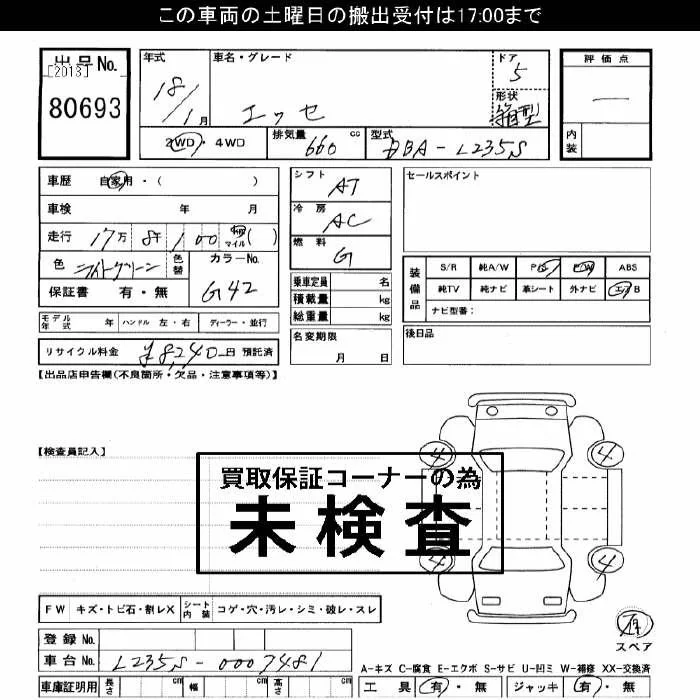 この車両の土曜日の搬出受付は17:00まで
出品No.
[2013]
80693
年式
18/1月
車名・グレード
エッセ
ドア
5
形状
箱型
評価点
内装
2WD・4WD
排気量
660 cc
型式
DBA-L235S
車歴 自家用・( )
車検 年 月
走行 17万 8千 100 マイル( )
色 ライトグリーン
色替
カラーNo.
G42
保証書 有・無
シフト
AT
冷房
AC
燃料
G
乗車定員 名
積載量 kg
総重量 kg
名変期限
月 日
セールスポイント
装備品
S/R 純A/W P/S P/W ABS
純TV 純ナビ 革シート 外ナビ エアB
ナビ型番:
後日品
モデル年式 年 ハンドル 左・右 ディーラー・並行
リサイクル料金 ¥8,240円 預託済
【出品店申告欄(不良箇所・欠品・注意事項等)】
【検査員記入】
買取保証コーナーの為
未検査
4
4
4
4
FW キズ・トビ石・割レX シート内装 コゲ・穴・汚レ・シミ・破レ・スレ
有
スペア
登録No.
車台No. L235S-0007481
A-キズ C-腐食 E-エクボ S-サビ U-凹ミ W-補修 XX-交換済
車庫証明用 長さ cm 幅 cm 高さ cm
工具 有・無 ジャッキ 有・無